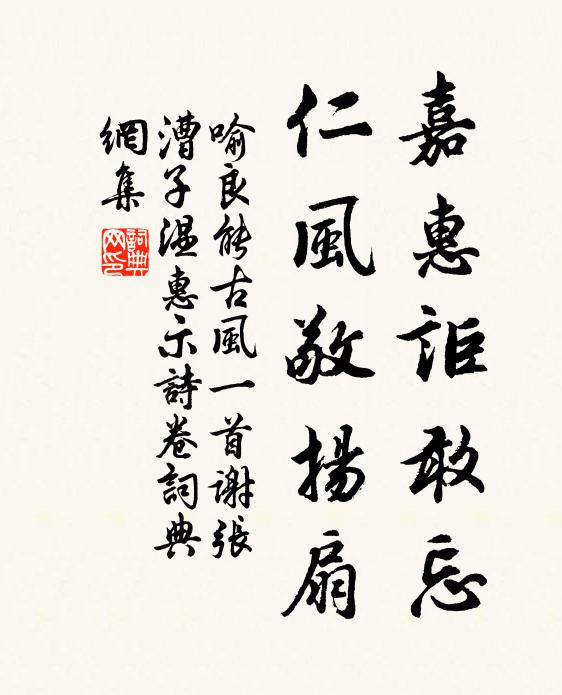 嘉惠詎敢忘
仁風敬揚扇
喻良能古風一首謝張
漕子溫惠示詩卷詞典
網集
詞典
网印